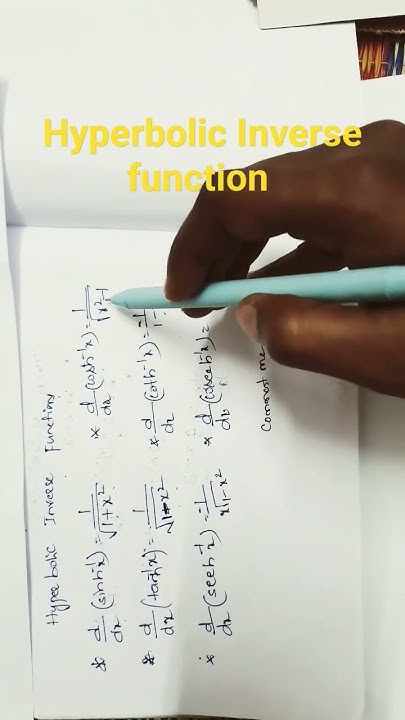 Hyperbolic Inverse
function
Hyperbolic Inverse Function
* d/dx (sinh⁻¹x) = 1/√1+x² * d/dx (cosh⁻¹x) = 1/√x²-1
* d/dx (tanh⁻¹x) = 1/√1-x² * d/dx (coth⁻¹x) =
* d/dx (sech⁻¹x) = -1/x√1-x² * d/dx (cosech⁻¹x) =
Comment me